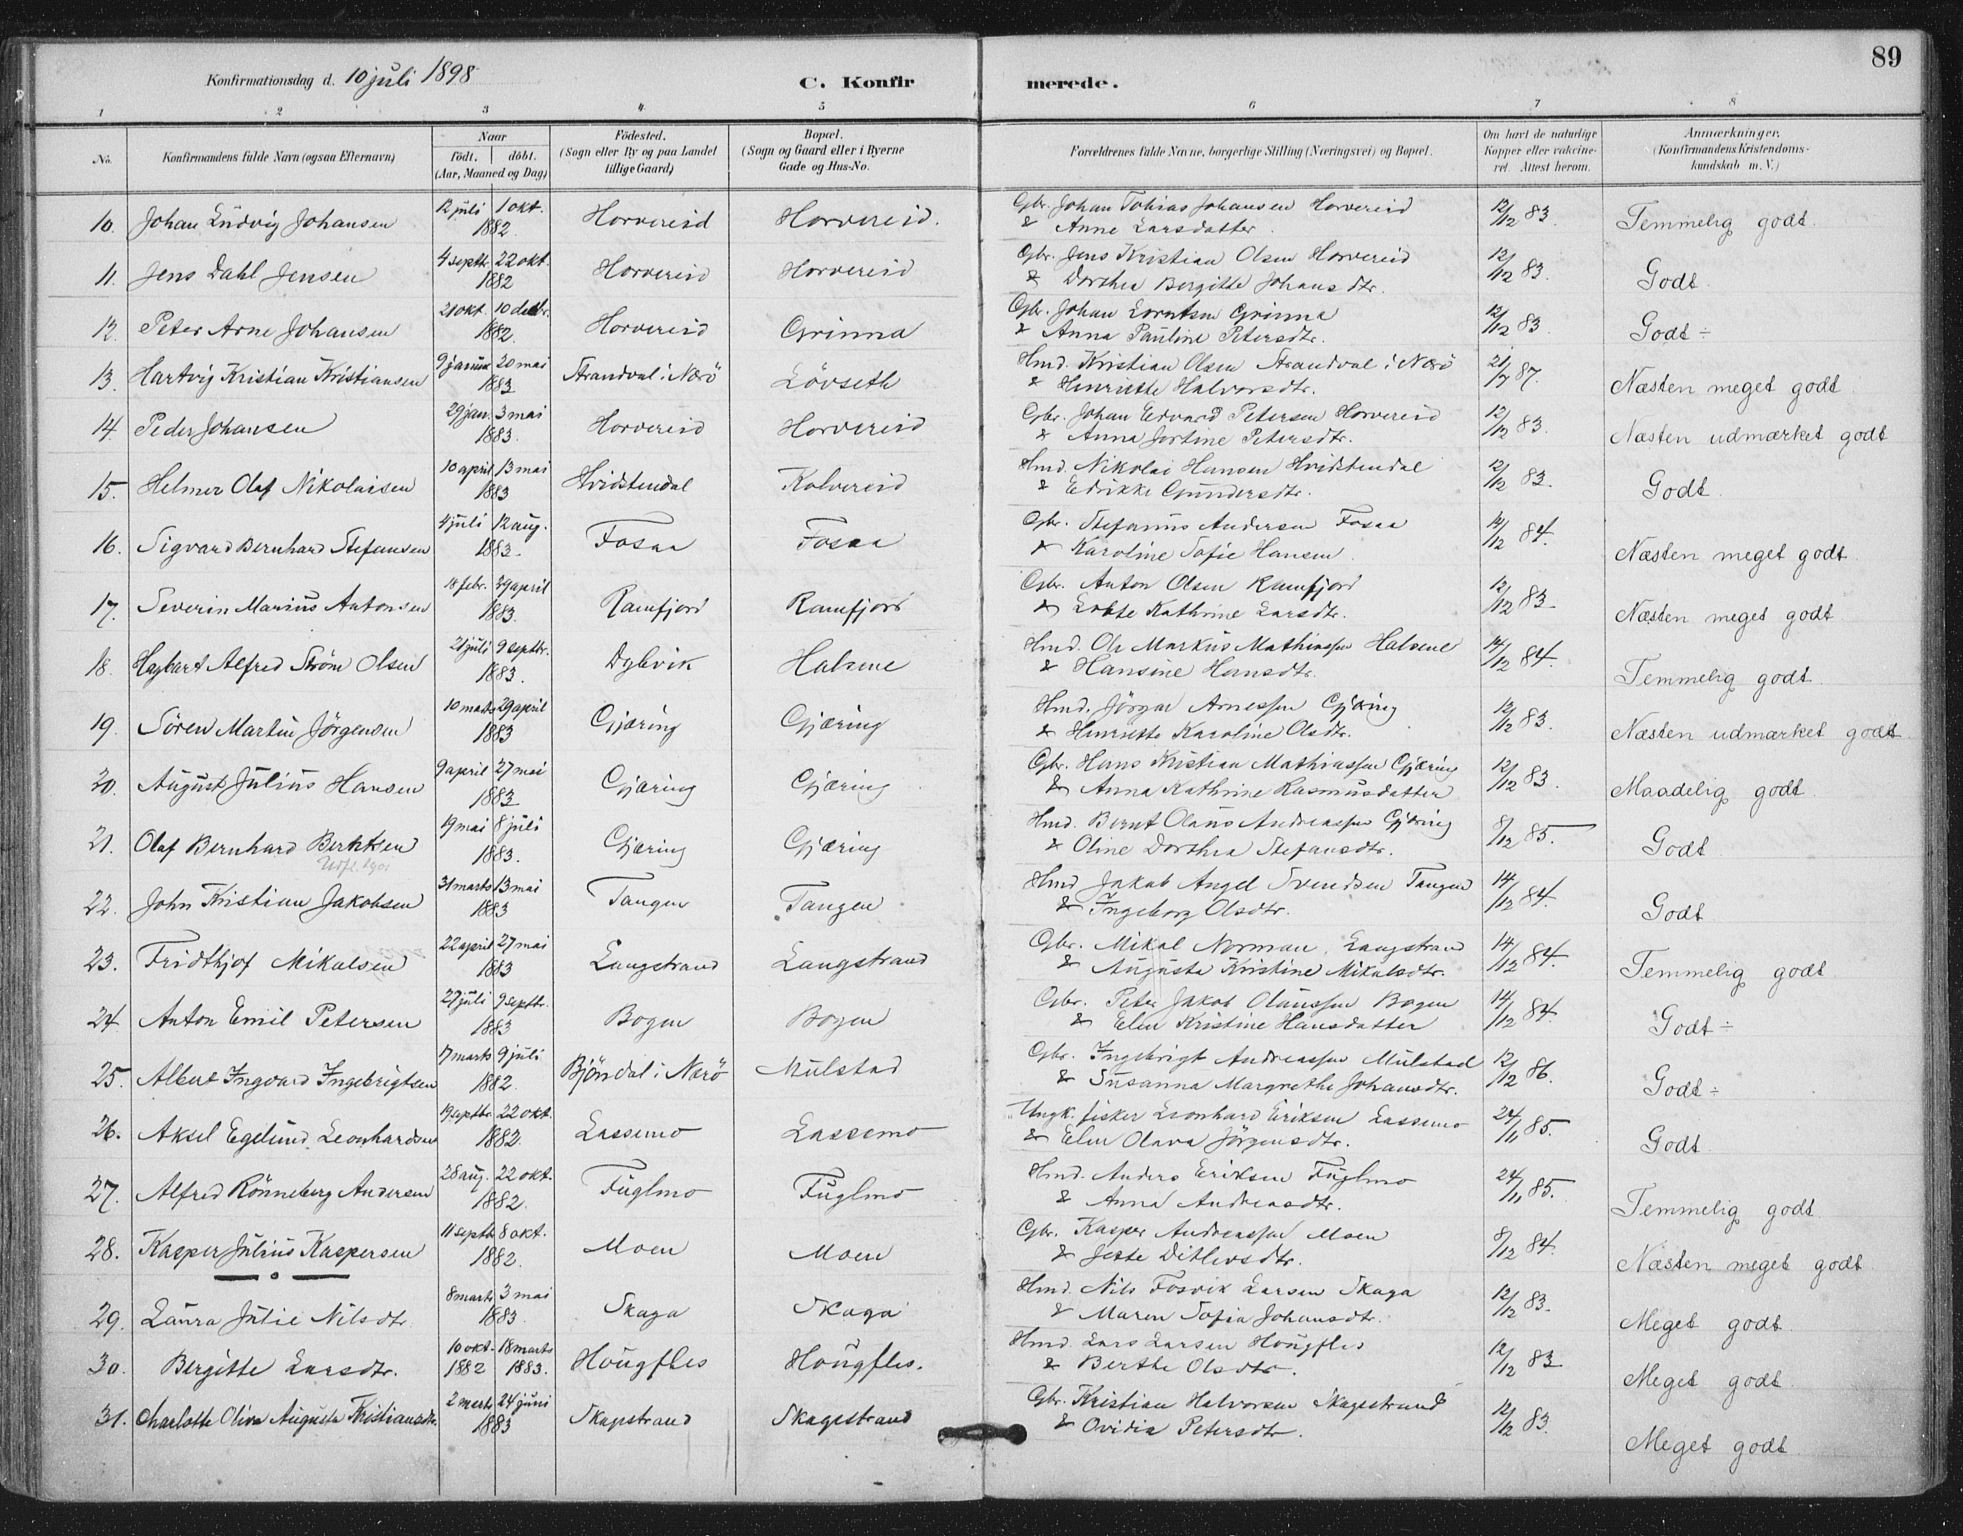 89
Konfirmationsdag d. 10 juli 1898
C. Konfirmerede.
1 2 3 4 5 6 7 8
No. Konfirmandens fulde Navn (ogsaa Efternavn) Naar født. døbt. (Aar, Maaned og Dag) Fødested. (Sogn eller By og paa Landet tillige Gaard) Bopæl. (Sogn og Gaard eller i Byerne Gade og Hus-No. Forældrenes fulde Navne, borgerlige Stilling (Næringsvei) og Bopæl. Om havt de naturlige Kopper eller vakcineret. Attest herom. Anmærkninger. (Konfirmandens Kristendomskundskab m. V.)
10. Johan Ludvig Johansen 12 juli 1 okt. 1882 Horvereid Horvereid. Gbr. Johan Tobias Johansen Horvereid & Anne Larsdatter 12/12 83. Temmelig godt.
11. Jens Dahl Jensen 4 septbr. 22 okt. 1882 Horvereid Horvereid Gbr. Jens Kristian Olsen Horvereid & Dorthea Bergitte Johansdtr. 12/12 83. Godt.
12. Peter Arne Johansen 21 okt. 10 decbr. 1882. Horvereid Grinna Gbr. Johan Lorntsen Grinna & Anna Pauline Petersdtr. 12/12 83. Godt ÷
13. Hartvig Kristian Kristiansen 9 januar 20 mai 1883 Strandval i Nærö Lövseth Hmd. Kristian Olsen Strandval i Nærö & Henriette Halvorsdtr. 21/7 87. Næsten meget godt
14. Peder Johansen 29 jan. 3 mai 1883. Horvereid Horvereid Gbr. Johan Edvard Petersen Horvereid & Anna Jortine Petersdtr. 12/12 83. Næsten udmærket godt
15. Helmer Olaf Nikolaisen 10 april 13 mai 1883 Hvidstendal Kolvereid Hmd. Nikolai Hansen Hvidstendal & Edrikke Gundersdtr. 12/12 83. Godt.
16. Sigvard Bernhard Stefansen 4 juli 12 aug. 1883. Fosaa Fosaa Gbr. Stefanus Andersen Fosaa & Karoline Sofie Hansen 14/12 84. Næsten meget godt
17. Severin Marius Antonsen 18 febr. 29 april 1883. Ramfjord Ramfjord Gbr. Anton Olsen Ramfjord & Lotte Kathrine Larsdtr. 12/12 83. Næsten meget godt
18. Hagbart Alfred Ström Olsen 21 juli 9 septbr. 1883. Dybvik Halsene Hmd. Ole Markus Mathiassen Halsene & Hansine Hansdtr. 14/12 84. Temmelig godt
19. Sören Martin Jörgensen 10 marts 29 april 1883 Gjæring Gjæring Hmd. Jörgen Arnessen Gjæring & Henriette Karoline Olsdtr. 12/12 83. Næsten udmærket godt
20. August Julius Hansen 9 april 27 mai 1883 Gjæring Gjæring Gbr. Hans Kristian Mathiassen Gjæring & Anna Kathrine Rasmusdatter 12/12 83. Maadelig godt.
21. Olaf Bernhard Berntsen 19 mai 8 juli 1883. Gjæring Gjæring Hmd. Bernt Olaus Andreassen Gjæring & Oline Dorthea Stefansdtr. 8/12 85. Godt
22. John Kristian Jakobsen 31 marts 13 mai 1883 Tangen Tangen Hmd Jakob Angel Svendsen Tangen & Ingeborg Olsdtr. 14/12 84. Godt
23. Fridthjof Mikalsen 22 april 27 mai 1883 Langstrand Langstrand Gbr. Mikal Norman Langstrand & Augusta Kristine Mikalsdtr. 14/12 84. Temmelig godt
24. Anton Emil Petersen 27 juli 9 septbr. 1883 Bogen Bogen Gbr. Peter Jakob Olaussen Bogen & Elen Kristine Hansdatter 14/12 84. Godt ÷
25. Albert Ingvard Ingebrigtsen 17 marts 9 juli 1882. Bjöndal i Nærö Mulstad Gbr. Ingebrigt Andreassen Mulstad & Susanna Margrethe Johansdtr. 12/12 86. Godt ÷
26. Aksel Egelund Leonhardsen 19 septbr. 22 okt. 1882. Lassemo Lassemo Ungk. fisker Leonhard Eriksen Lassemo & Elen Olava Jörgensdtr. 24/11 85. Godt.
27. Alfred Rönneberg Andersen 28 aug. 22 okt. 1882. Fuglmo Fuglmo Hmd. Anders Eriksen Fuglmo & Anna Andreasdtr. 24/11 85. Temmelig godt
28. Kasper Julius Kaspersen 11 septbr 8 okt. 1882. Moen Moen Gbr. Kasper Andreassen Moen & Jette Ditlevsdtr. 8/12 84. Næsten meget godt
29. Laura Julie Nilsdtr. 8 marts 3 mai 1883. Skaga Skaga Hmd. Nils Fosvik Larsen Skaga & Maren Sofia Johansdtr. 12/12 83. Meget godt
30. Bergitte Larsdtr. 10 okt. 1882 18 marts 1883. Hougfles Hougfles. Hmd. Lars Larsen Hougfles & Berthe Olsdtr. 12/12 83 Meget godt
31. Charlotte Oliva Augusta Kristiansdtr. 2 marts 24 juni 1883 Skagestrand Skagestrand Gbr. Kristian Halvorsen Skagestrand & Ovidia Petersdtr. 12/12 83. Meget godt